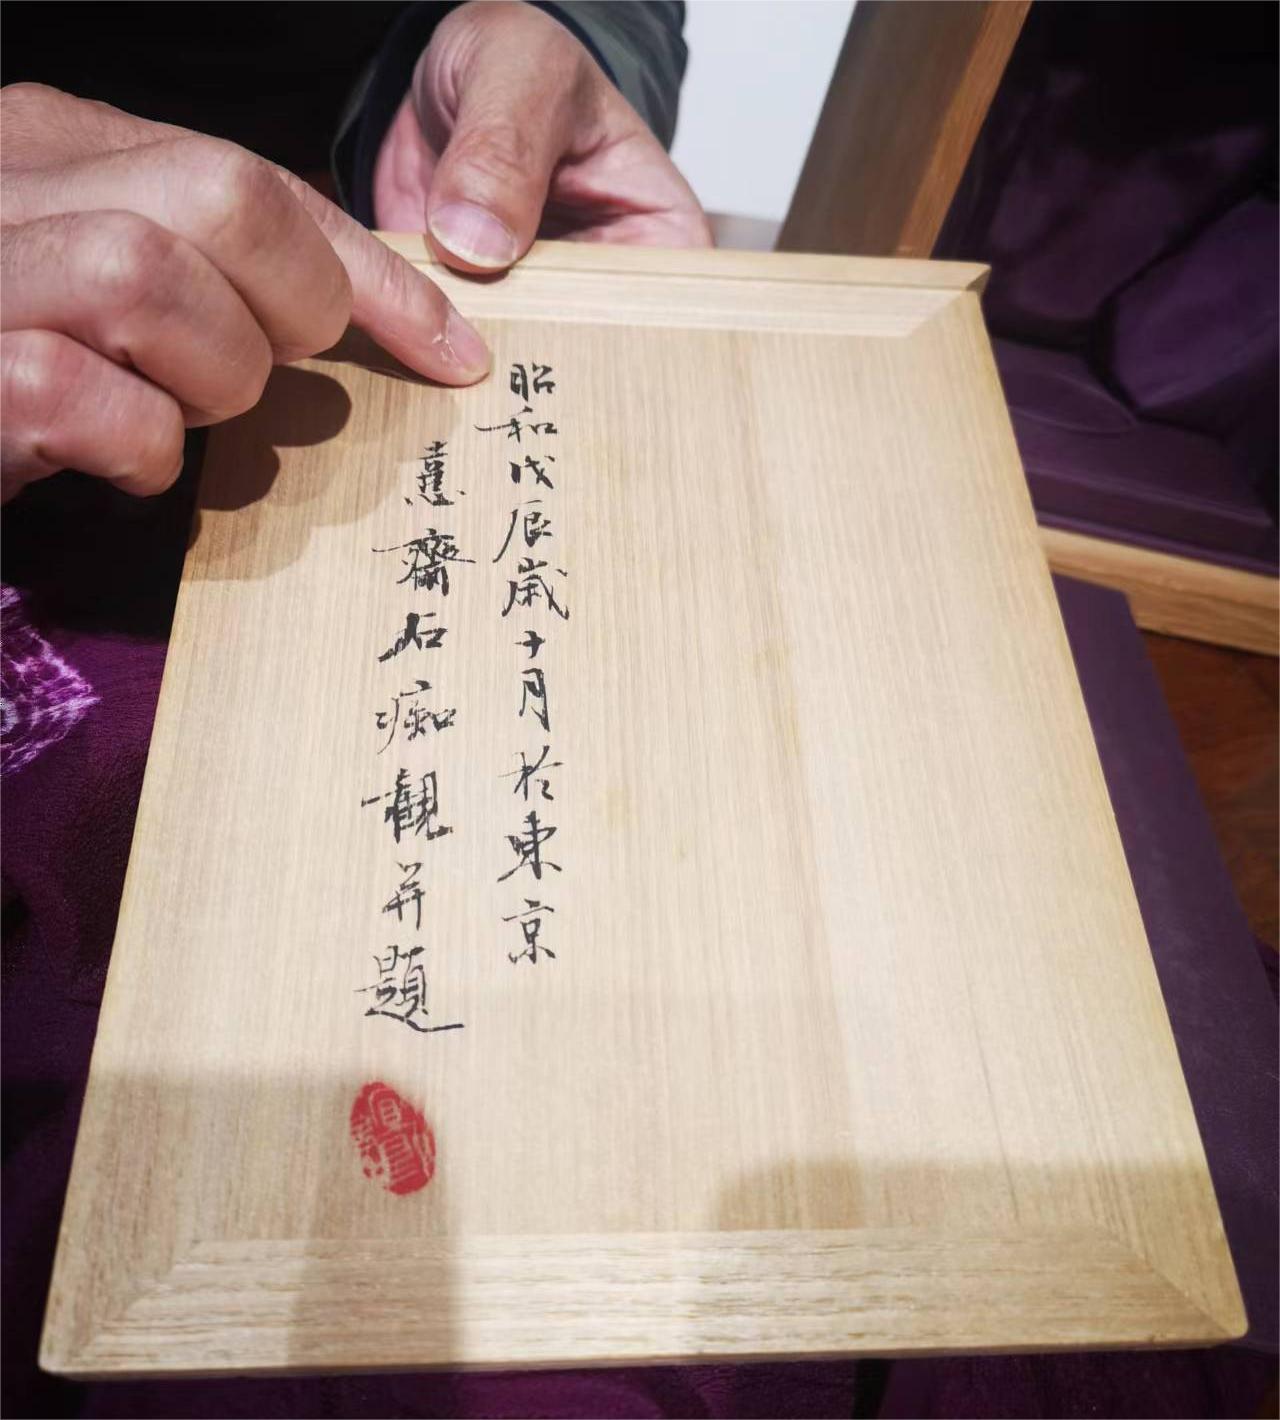 昭和戊辰歳十月於東京
憙齋石痴觀并題